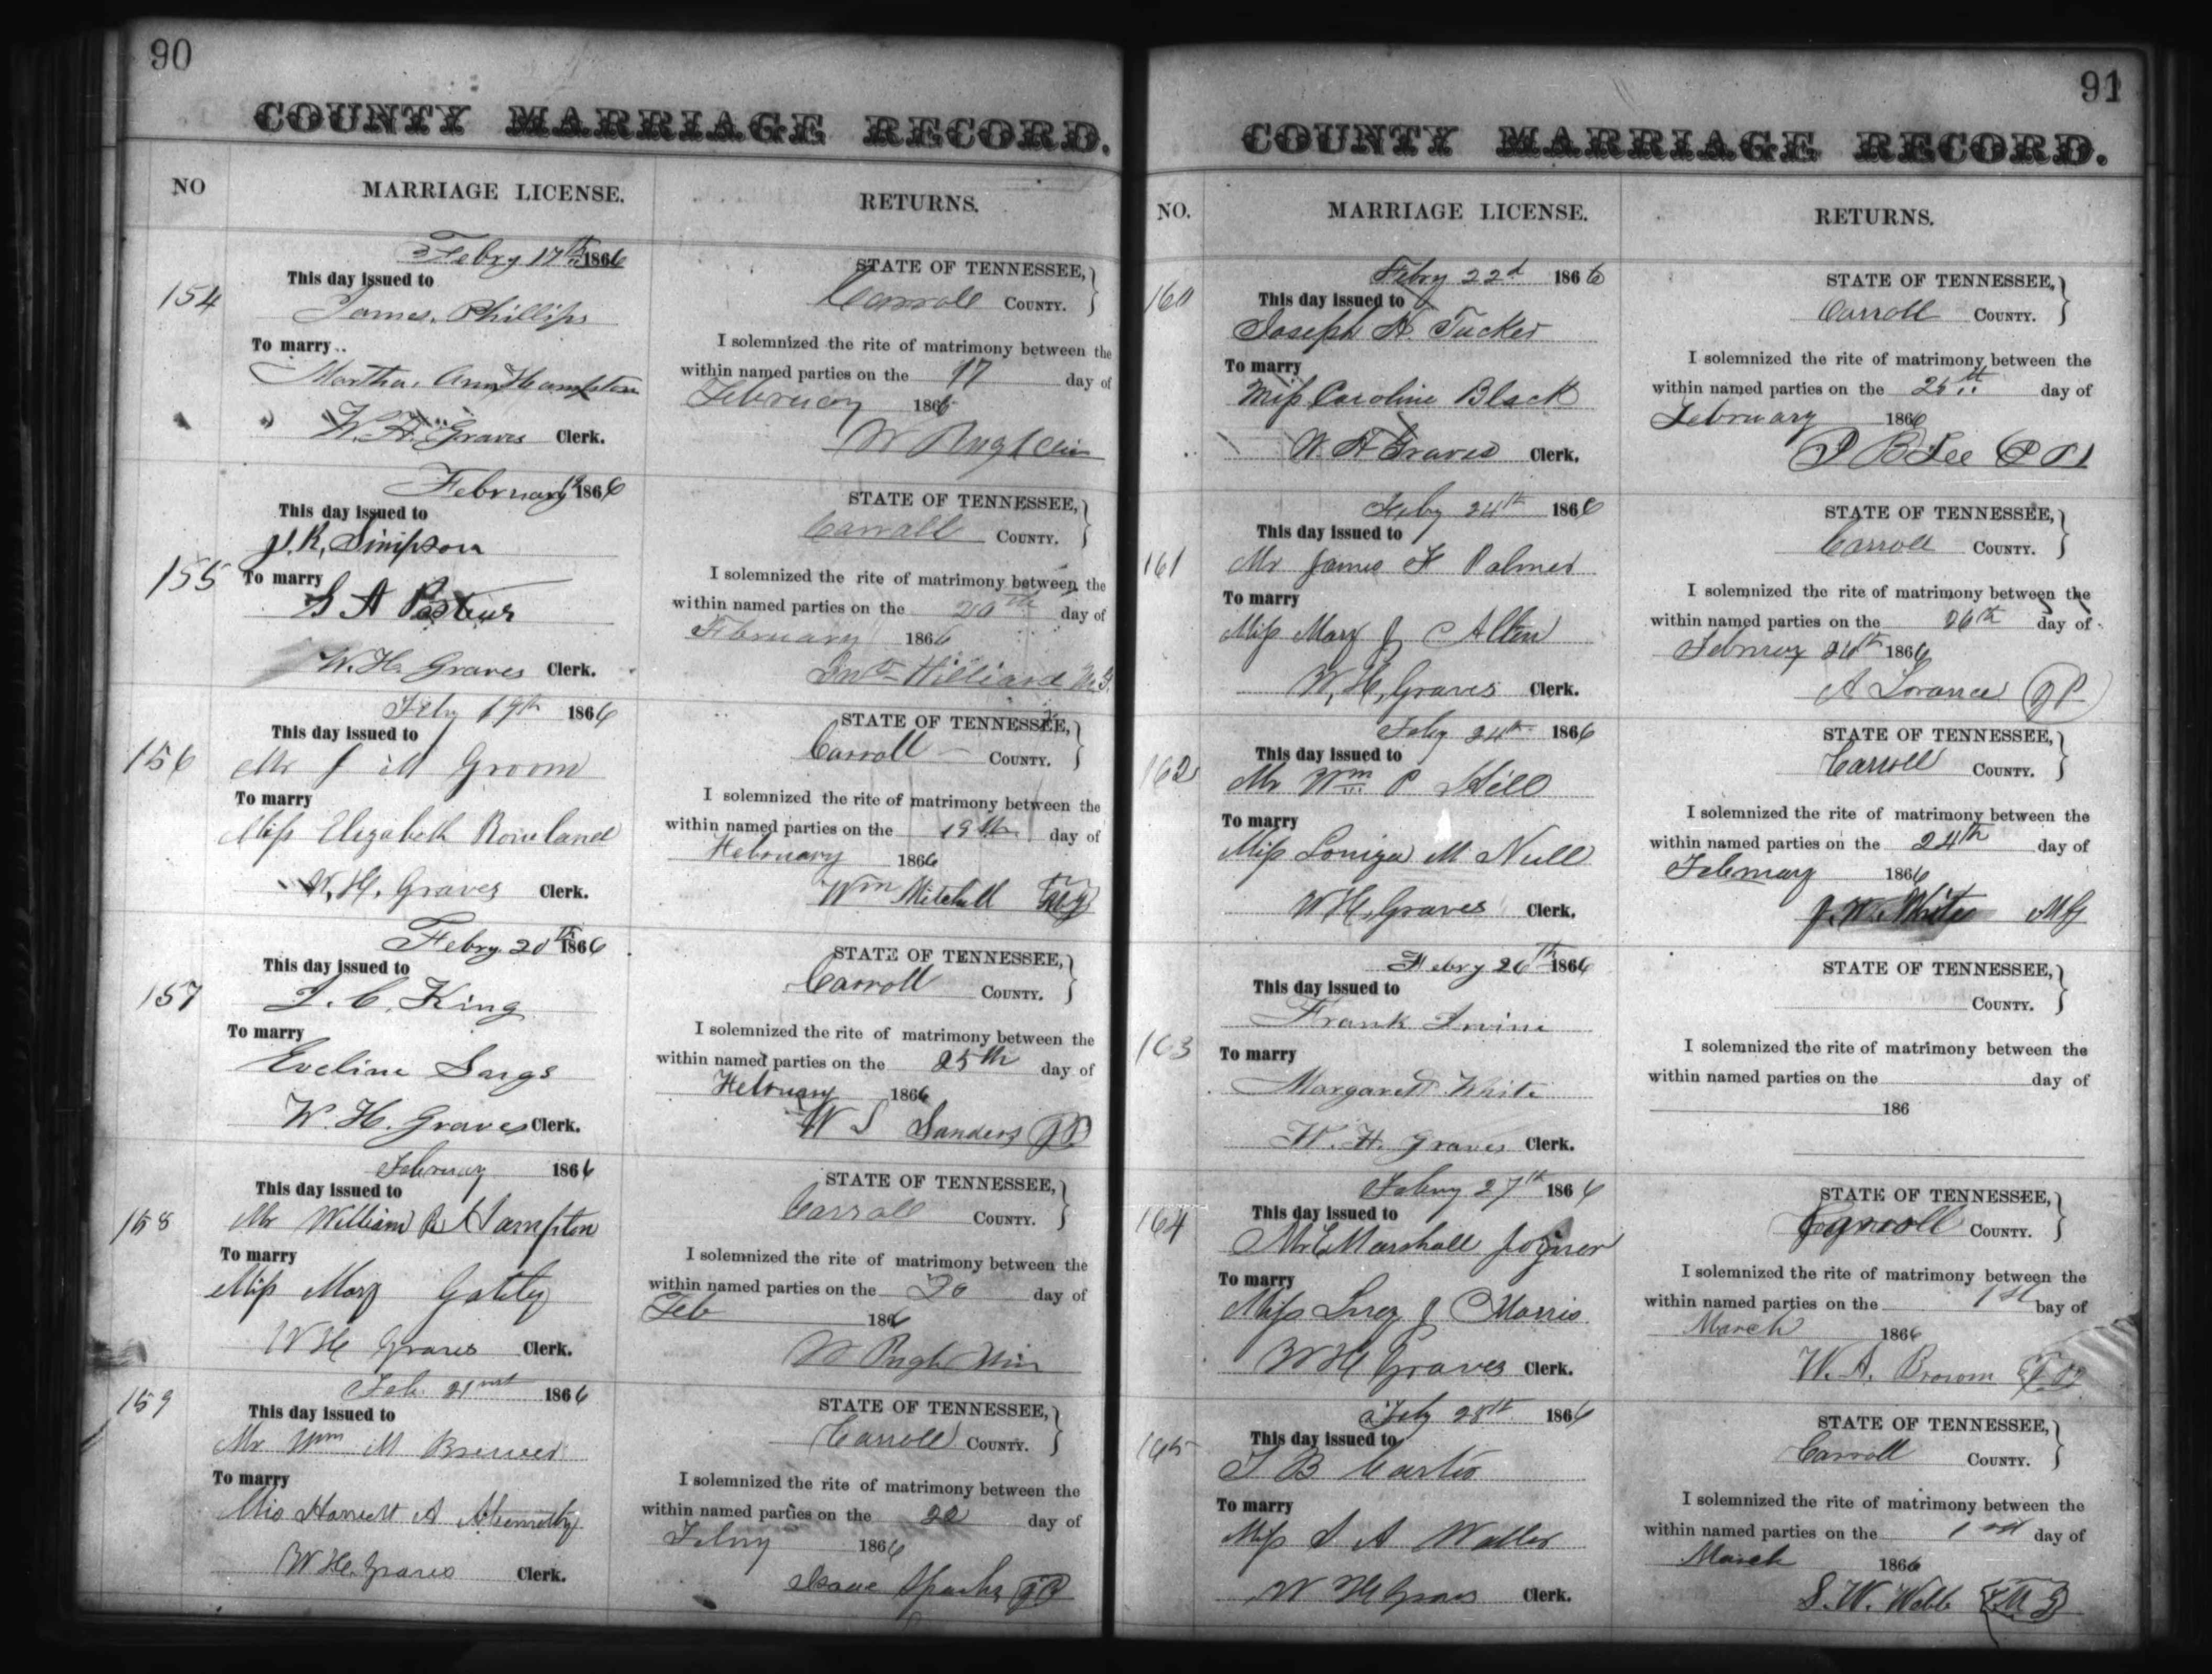 90
COUNTY MARRIAGE RECORD.
NO
MARRIAGE LICENSE.
RETURNS.
154
Febry 17th 1866
This day issued to
James Phillips
To marry
Martha Ann Hampton
W. H. Graves Clerk.
STATE OF TENNESSEE,
Carroll COUNTY.
I solemnized the rite of matrimony between the
within named parties on the 17 day of
February 1866
W Pugh
155
February 1866
This day issued to
J. R. Simpson
To marry
S A
W. H. Graves Clerk.
STATE OF TENNESSEE,
Carroll COUNTY.
I solemnized the rite of matrimony between the
within named parties on the 20th day of
February 1866
Jno Hilliard M.G.
156
Feby 19th 1866
This day issued to
Mr J M Groom
To marry
Miss Elizabeth Rowland
W. H. Graves Clerk.
STATE OF TENNESSEE,
Carroll COUNTY.
I solemnized the rite of matrimony between the
within named parties on the 19th day of
February 1866
Wm Mitchell MG
157
Febry 20th 1866
This day issued to
King
To marry
Eveline
W. H. Graves Clerk.
STATE OF TENNESSEE,
Carroll COUNTY.
I solemnized the rite of matrimony between the
within named parties on the 25th day of
February 1866
W S Sanders JP
158
February 1866
This day issued to
Mr William R Hampton
To marry
Miss Mary
W H Graves Clerk.
STATE OF TENNESSEE,
Carroll COUNTY.
I solemnized the rite of matrimony between the
within named parties on the 20 day of
Feb 1866
W Pugh Min
159
Feb. 21 1866
This day issued to
Mr Wm M Brewer
To marry
Harriett A
W H. Graves Clerk.
STATE OF TENNESSEE,
Carroll COUNTY.
I solemnized the rite of matrimony between the
within named parties on the 22 day of
Febry 1866
Isaac Sparks JP
91
COUNTY MARRIAGE RECORD.
NO.
MARRIAGE LICENSE.
RETURNS.
160
Febry 22d 1866
This day issued to
Joseph H. Tucker
To marry
Miss Caroline Black
W. H Graves Clerk.
STATE OF TENNESSEE,
Carroll COUNTY.
I solemnized the rite of matrimony between the
within named parties on the 25th day of
February 1866
B Lee
161
Feby 24th 1866
This day issued to
Mr James F Palmer
To marry
Miss Mary J Allen
W, H, Graves Clerk.
STATE OF TENNESSEE,
Carroll COUNTY.
I solemnized the rite of matrimony between the
within named parties on the 26th day of
Febury 26th 1866
A Lorance JP
162
Feby 24th 1866
This day issued to
Mr Wm P Hill
To marry
Miss Louiza M Null
W H, Graves Clerk.
STATE OF TENNESSEE,
Carroll COUNTY.
I solemnized the rite of matrimony between the
within named parties on the 24th day of
February 1866
J. W. White MG
163
Febry 26th 1866
This day issued to
Frank Irvine
To marry
Margarett White
W. H. Graves Clerk.
STATE OF TENNESSEE,
COUNTY.
I solemnized the rite of matrimony between the
within named parties on the day of
186
164
Febury 27th 1866
This day issued to
Mr E Marshall Joyner
To marry
Miss Lucy J Morris
W H Graves Clerk.
STATE OF TENNESSEE,
Carroll COUNTY.
I solemnized the rite of matrimony between the
within named parties on the 1st bay of
March 1866
W. A. Brown
165
Feby 28th 1866
This day issued to
B Carter
To marry
Miss S A Waller
W H Graves Clerk.
STATE OF TENNESSEE,
Carroll COUNTY.
I solemnized the rite of matrimony between the
within named parties on the day of
March 1866
S. W. Webb